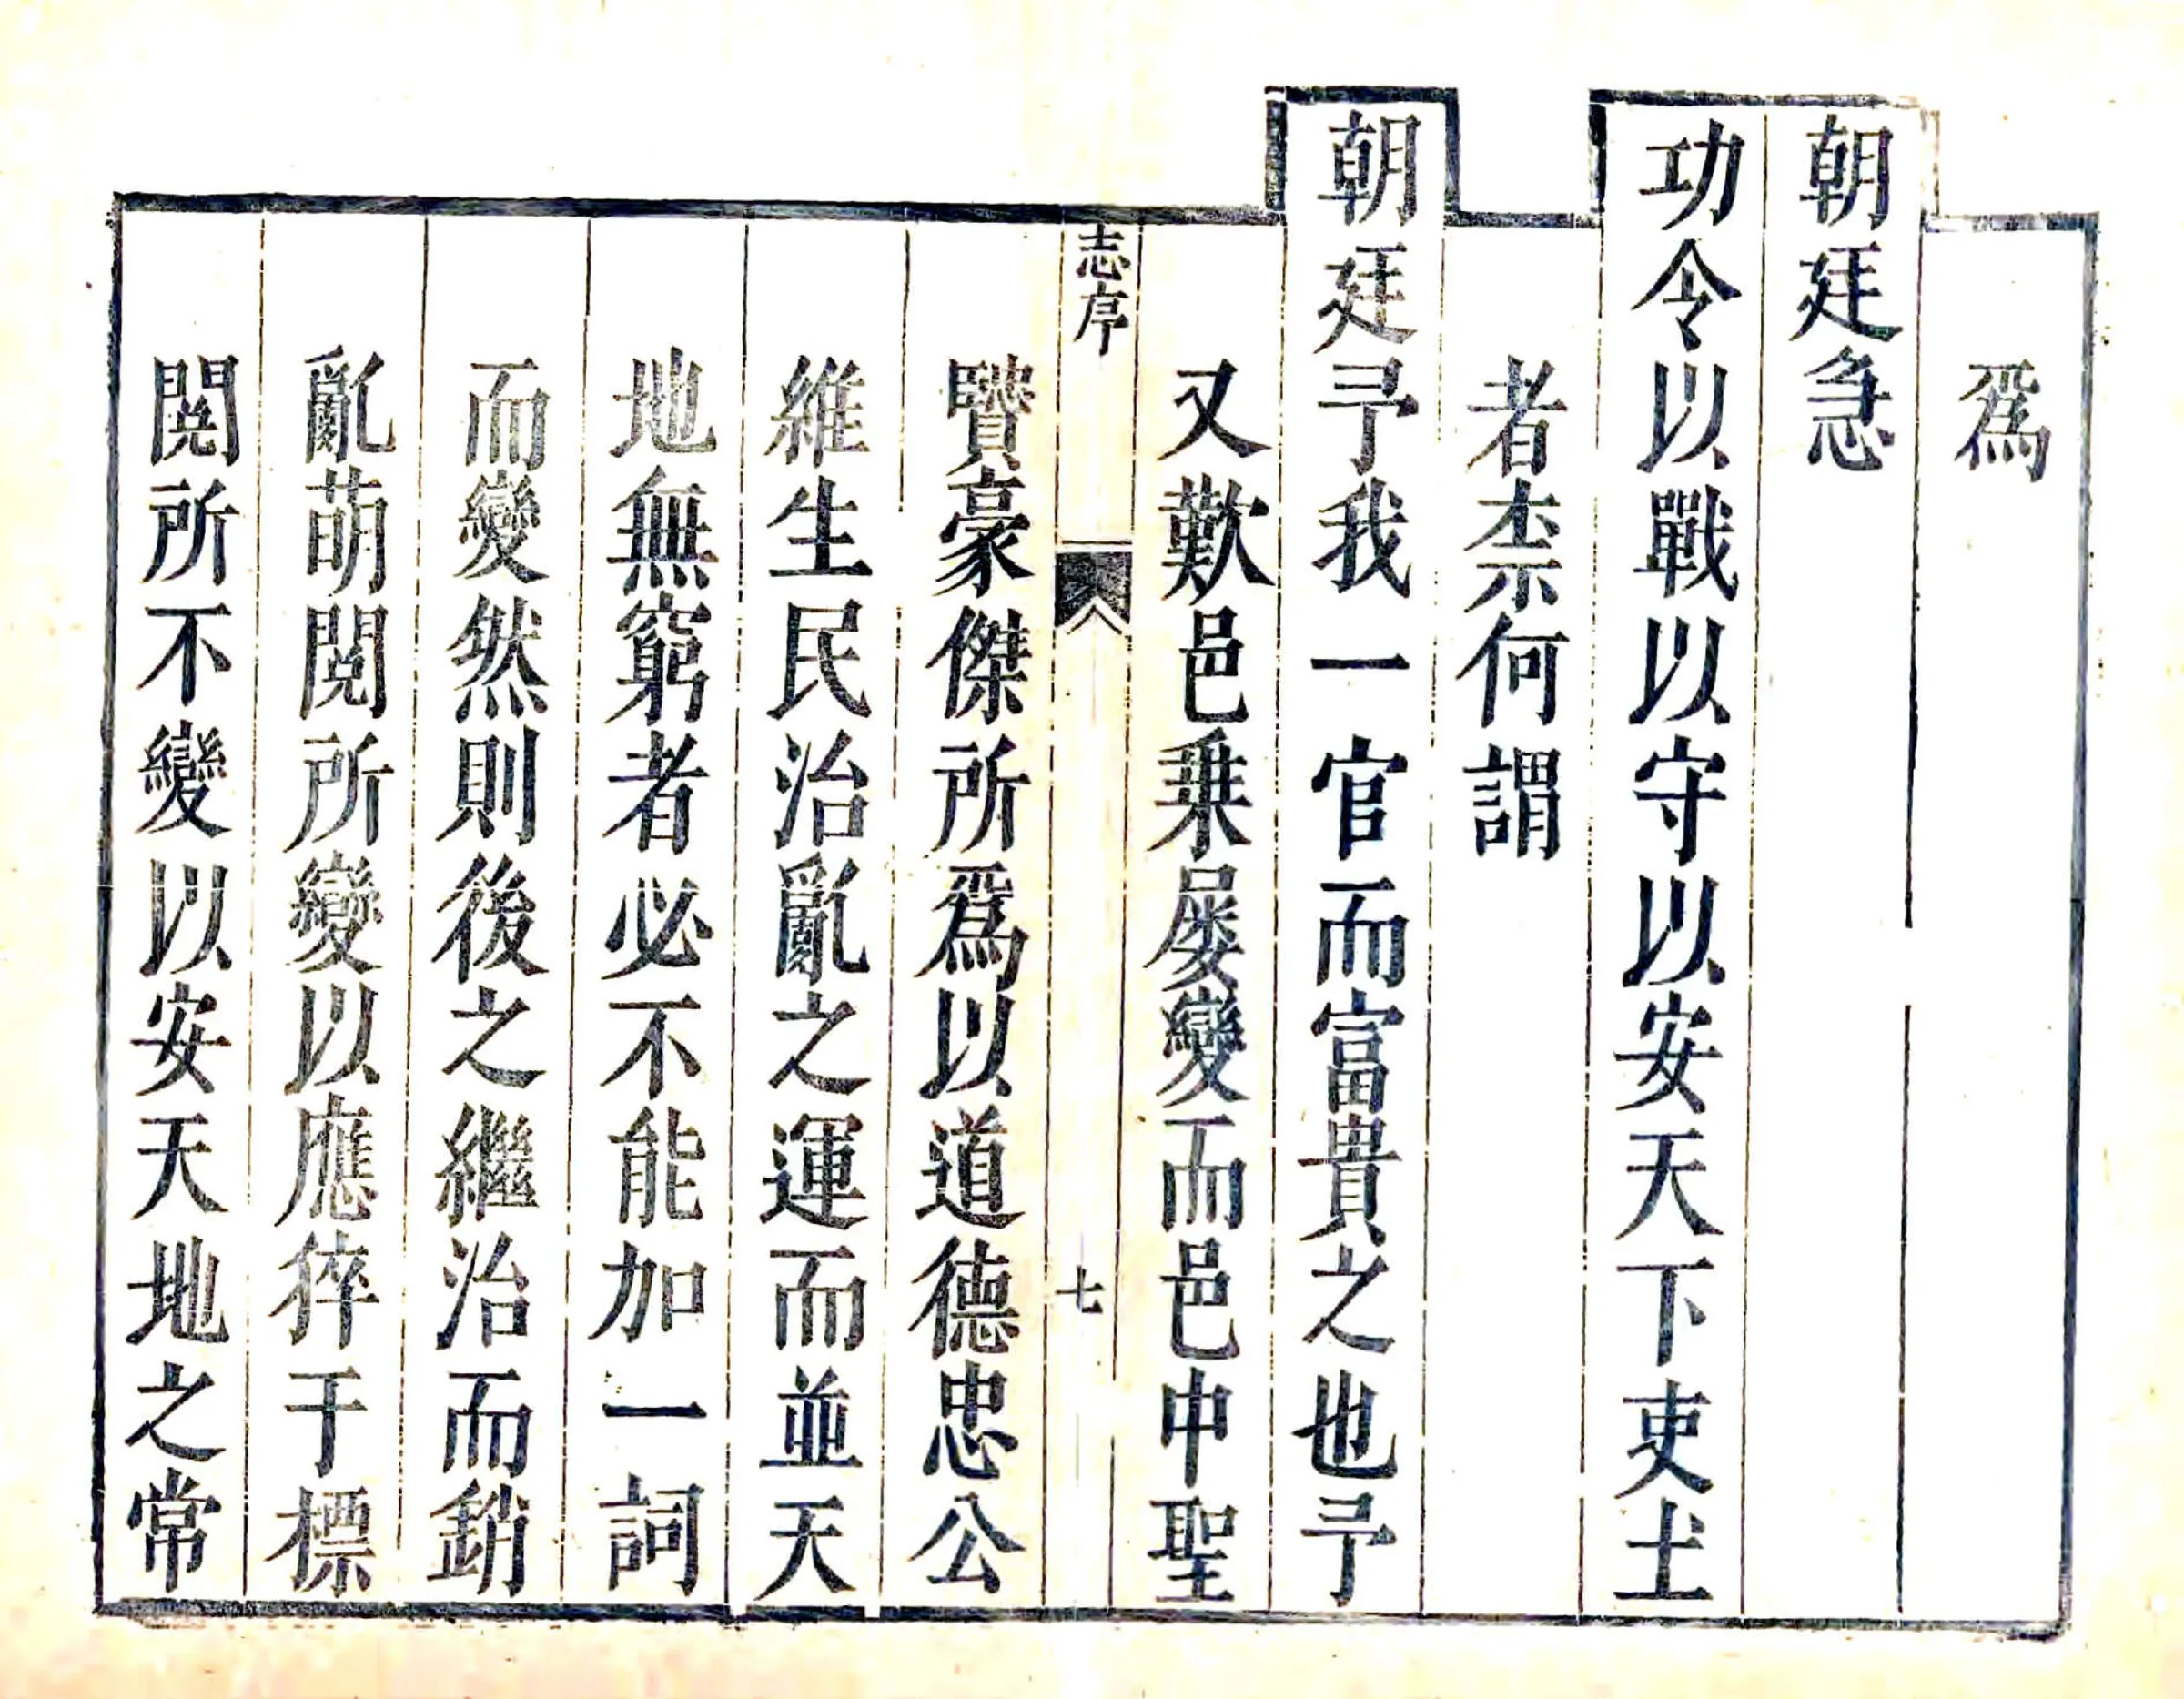 爲
朝廷急
功令以戰以守以安天下吏士
者柰何謂
朝廷予我一官而富貴之也予
又歎邑乗屡變而邑中聖
志序
七
賢豪傑所爲以道德忠公
維生民治亂之運而並天
地無窮者必不能加一詞
而變然則後之繼治而銷
亂萌閱所變以應猝于標
閱所不變以安天地之常